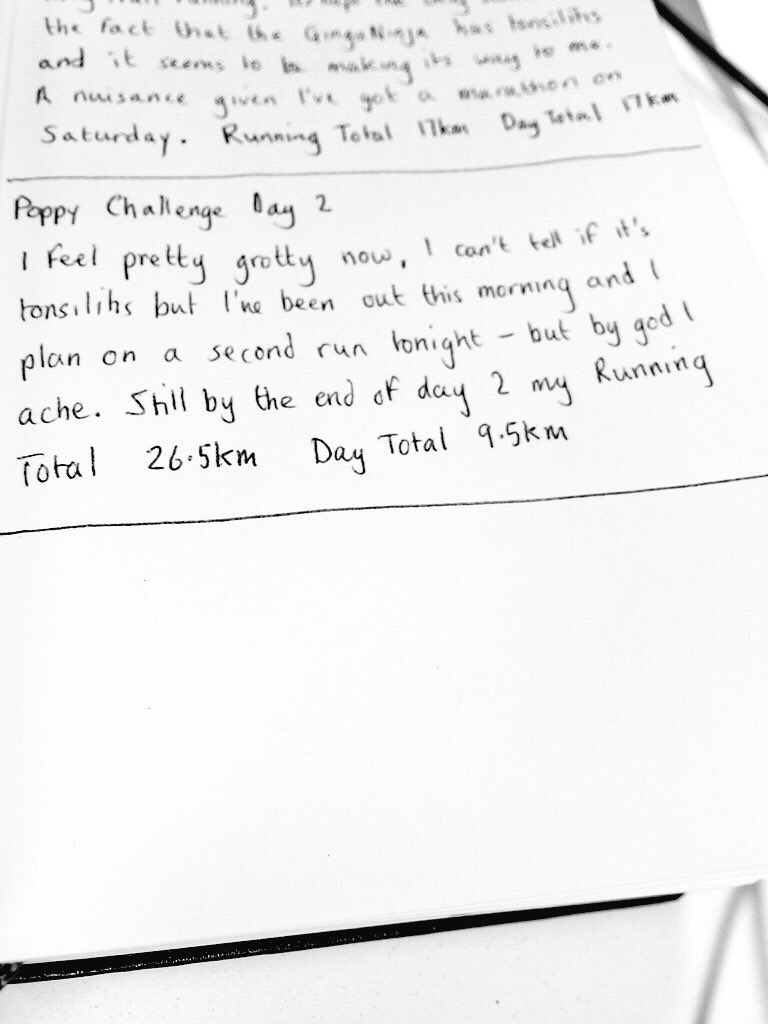 running. Perhaps the only
the fact that the GingaNinja has tonsilitis
and it seems to be making its way to me.
A nuisance given I've got a marathon on
Saturday. Running Total 17km Day Total 17km
Poppy Challenge Day 2
I feel pretty grotty now, I can't tell if it's
tonsilitis but I've been out this morning and I
plan on a second run tonight – but by god I
ache. Still by the end of day 2 my Running
Total 26.5km Day Total 9.5km